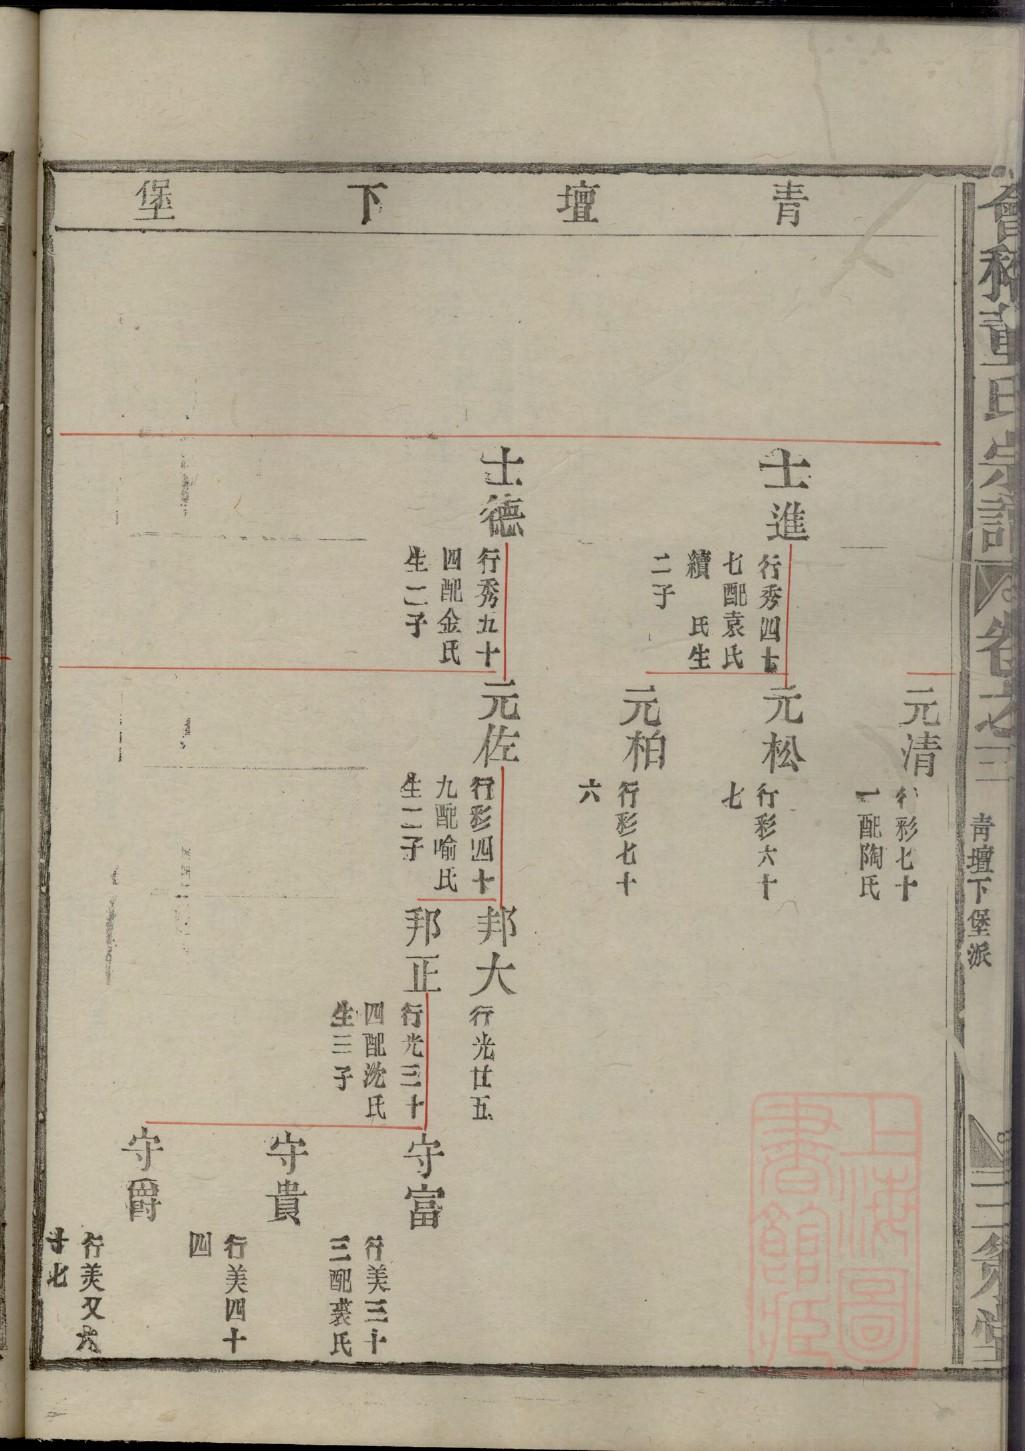 會稽董氏宗譜
卷之三
青壇下堡派
三策堂
青壇下堡
士進
行秀四十
七配袁氏
續 氏生
二子
士德
行秀五十
四配金氏
生二子
元清
行彩七十
一配陶氏
元松
行彩六十
七
元柏
行彩七十
六
元佐
行彩四十
九配喻氏
生二子
邦大
行光廿五
邦正
行光三十
四配沈氏
生三子
守富
行美三十
三配裘氏
守貴
行美四十
四
守爵
行美又六
十七
上海圖
書館藏